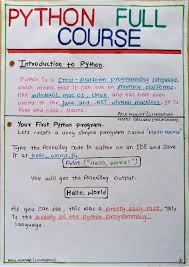 PYTHON FULL
COURSE
Introduction to Python.
Python is a cross-platform programming language,
which means that it can run on multiple platforms
like windows, mac os, linux, and has even been
ports to the Java and .NET virtual machines. It is
free and open-source.
Your First Python program.
Let's create a very simple program called 'Hello World'
Type the following code in editor or an IDE and save
it as hello_world.py
Print ("Hello, World!")
You will get the following output.
Hello, World
As you can see, this was a pretty easy task. This
is the beauty of the Python programming
language.